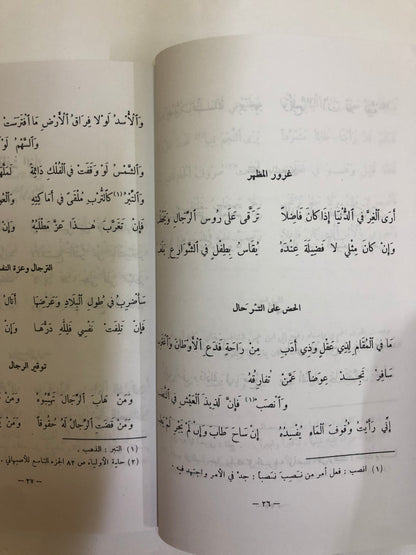 غرور المظهر
أَرَى الْغِرَّ فِي الدُّنْيَا إِذَا كَانَ فَاضِلاً تَرَقَّى عَلَى رُوسِ الرِّجَالِ
وَإِنْ كَانَ مِثْلِي لاَ فَضِيلَةَ عِنْدَهُ يُقَاسُ بِطِفْلٍ فِي الشَّوَارِعِ
الحض على الترحال
مَا فِي الْمُقَامِ لِذِي عَقْلٍ وَذِي أَدَبٍ مِنْ رَاحَةٍ فَدَعِ الْأَوْطَانَ
سَافِرْ تَجِدْ عِوَضاً عَمَّنْ تُفَارِقُهُ
وَانْصَبْ (١) فَإِنَّ لَذِيذَ الْعَيْشِ فِي
إِنِّي رَأَيْتُ وُقُوفَ الْمَاءِ يُفْسِدُهُ إِنْ سَاحَ طَابَ وَإِنْ لَمْ يَجْرِ لَمْ
(١) انصب : فعل أمر من نَصِبَ نَصَباً : جد في الأمر واجتهد فيه .
— ٢٦ —
وَالْأُسْدُ لَوْلاَ فِرَاقُ الْأَرْضِ مَا افْتَرَسَتْ
وَالسَّهْمُ لَوْ
وَالشَّمْسُ لَوْ وَقَفَتْ فِي الْفُلْكِ دَائِمَةً
وَالتِّبْرُ (١) كَالتُّرْبِ مُلْقًى فِي أَمَاكِنِهِ
فَإِنْ تَغَرَّبَ هَذَا عَزَّ مَطْلَبُهُ وَإِنْ
الترحال وعزة النفس
سَأَضْرِبُ فِي طُولِ الْبِلاَدِ وَعَرْضِهَا أَنَالُ
فَإِنْ تَلِفَتْ نَفْسِي فَلِلَّهِ دَرُّهَا وَإِنْ
توقير الرجال
وَمَنْ هَابَ الرِّجَالَ تَهَيَّبُوهُ وَمَنْ
وَمَنْ قَضَتِ الرِّجَالُ لَهُ حُقُوقاً
(١) التبر : الذهب .
(٢) حلية الأولياء ص ٨٢ الجزء التاسع للأصبهاني .
— ٢٧ —